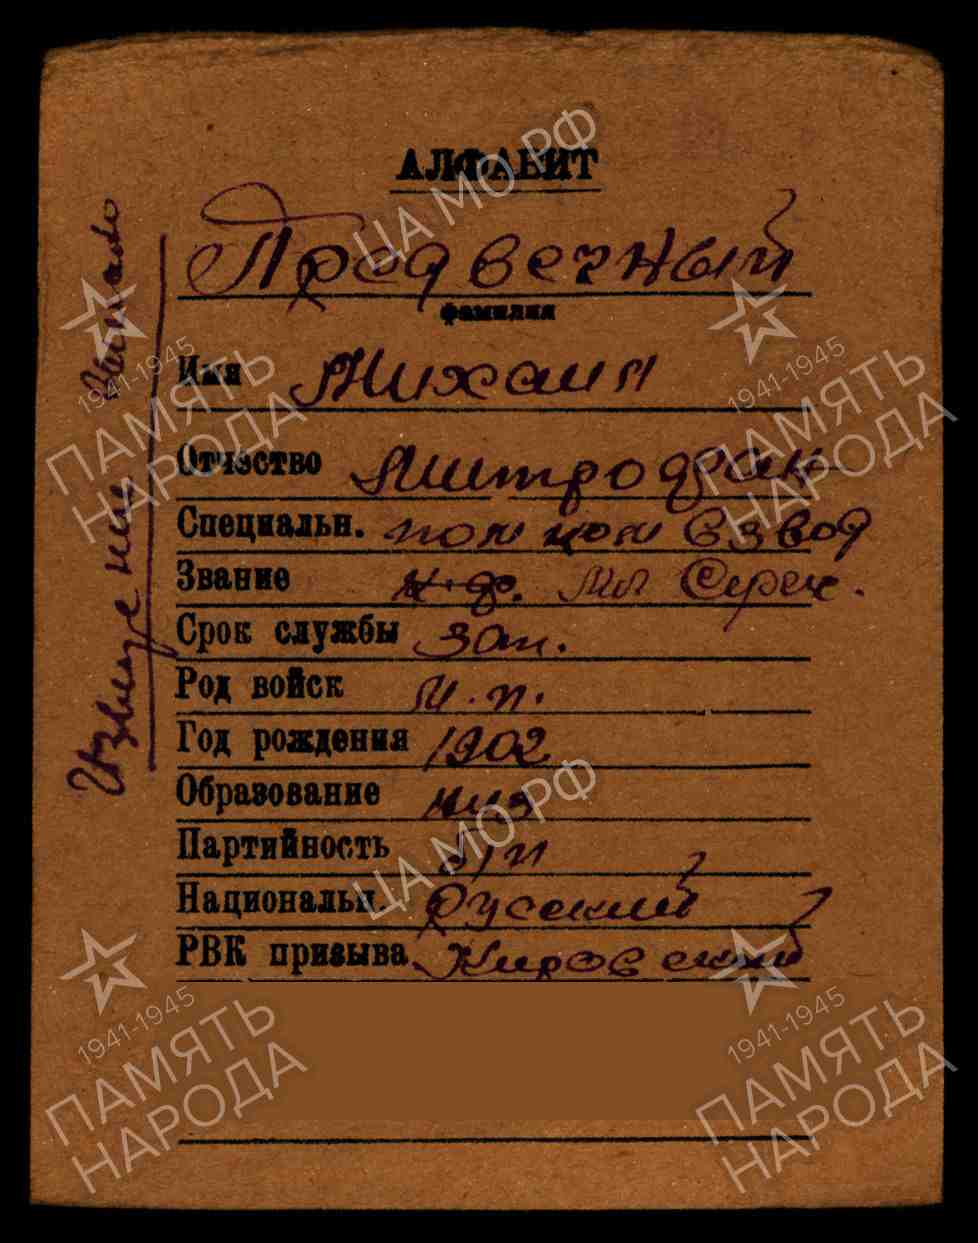 АЛФАВИТ
Предвечный
фамилия
Имя Михаил
Отчество Митрофан
Специальн. пом ком взвод
Звание Мл Серж.
Срок службы зап.
Род войск
Год рождения 1902
Образование низ
Партийность б/п
Национальн. Русский
РВК призыва Кировский
Извещение
ЦА МО РФ
1941-1945
ПАМЯТЬ
НАРОДА
1941-1945
ПАМЯТЬ
НАРОДА
ЦА МО РФ
1941-1945
ПАМЯТЬ
НАРОДА
1941-1945
ПАМЯТЬ
НАРОДА